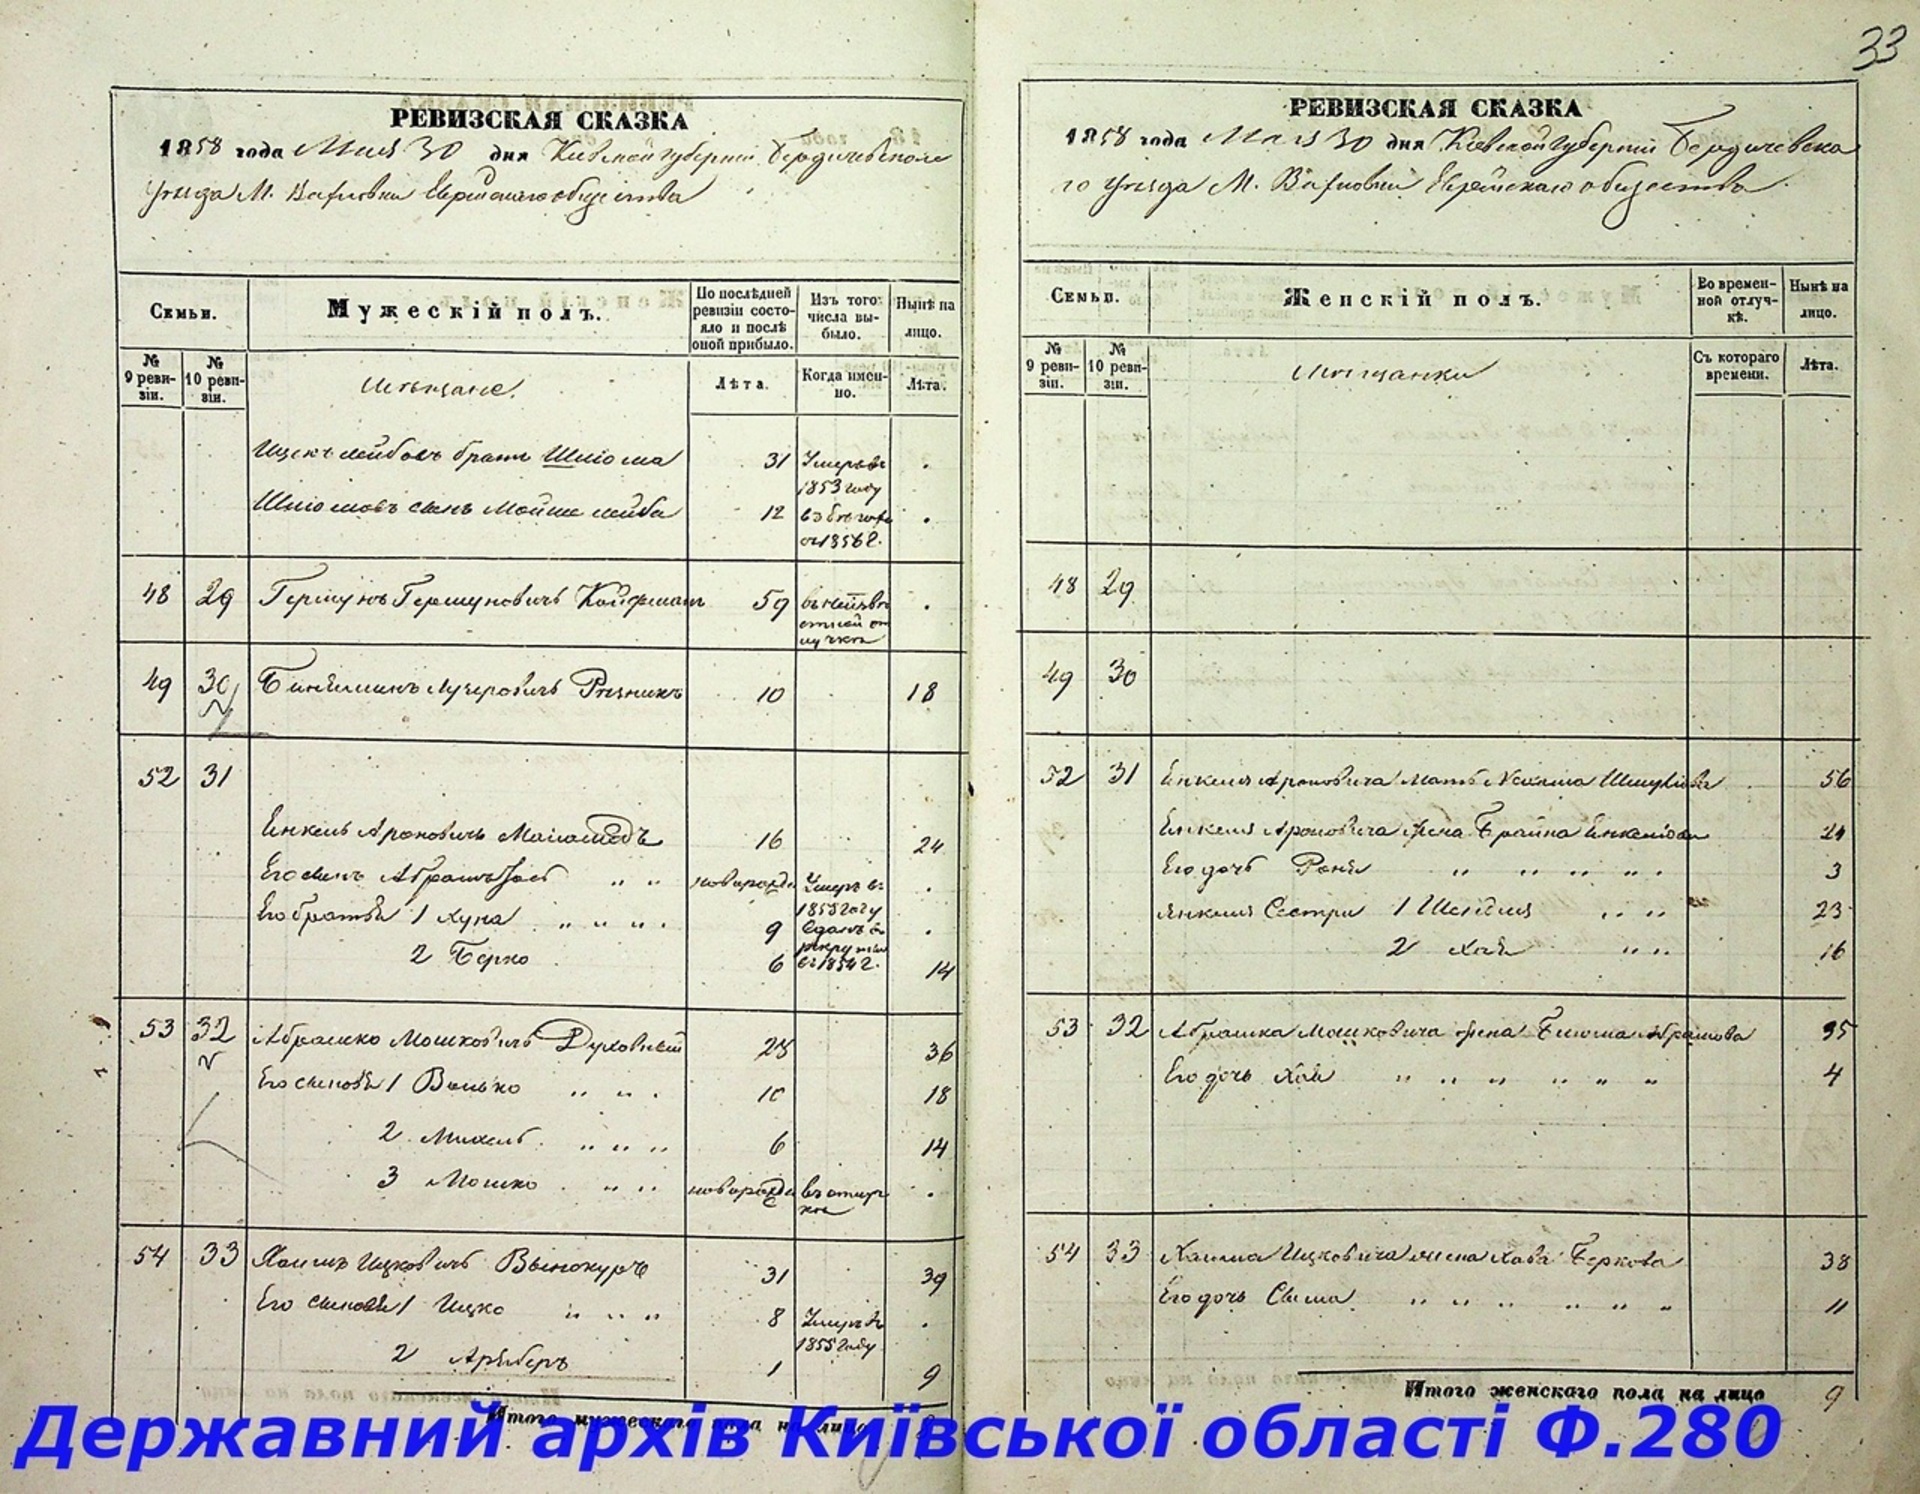 33
РЕВИЗСКАЯ СКАЗКА
1858 года Мая 30 дня Киевской губернии Бердичевского
Уезда М. Вахновки Еврейского общества
Семьи.
Мужескій полъ.
По послѣдней ревизіи состояло и послѣ оной прибыло.
Изъ того числа выбыло.
Нынѣ на лицо.
№ 9 ревизіи.
№ 10 ревизіи.
Мѣщане.
Лѣта.
Когда именно.
Лѣта.
Ицекъ Лейбовъ братъ Шліома 31 Умеръ въ 1853 году
Шліомовъ сынъ Мойше Лейба 12 въ бѣгахъ съ 1856 г.
48 29 Гершунъ Гершуновичъ Койфманъ 59 въ неизвѣстной отлучке
49 30 Биніаминъ Лузеровичъ Резникъ 10 18
52 31
Енкель Ароновичъ 16 24
Его сынъ Абрамъ новорожд Умеръ въ 1855 году
Его братья 1 Хуна 9 Сданъ в рекруты в 1854 г.
2 Берко 6 14
53 32 Абрашко Мошковичъ Духовный 28 36
Его сыновья 1 Волько 10 18
2 Михель 6 14
3 Мошко новорожд
54 33 Хаимъ Ицковичъ Вынокуръ 31 39
Его сыновья 1 Ицко 8 Умеръ в 1855 году
2 Арыберъ 1 9
Итого мужескаго пола на лицо
РЕВИЗСКАЯ СКАЗКА
1858 года Мая 30 дня Киевской губерніи Бердичевска
го Уезда М. Вахновки Еврейскаго общества.
Семьи.
Женскій полъ.
Во временной отлучкѣ.
Нынѣ на лицо.
№ 9 ревизіи.
№ 10 ревизіи.
Мѣщанки
Съ котораго времени.
Лѣта.
48 29
49 30
52 31 Енкеля Ароновича мать Нехама Шмулева 56
Енкеля Ароновича жена Брайна Енкелева 24
Его дочь Роня 3
Янкеля Сестри 1 Шендля 23
2 Хая 16
53 32 Абрашка Мошковича жена Абрамова 35
Его дочь Хая 4
54 33 Хаима Ицковича жена Хава Беркова 38
Его дочь Сима 11
Итого женскаго пола на лицо 9
Державний архів Київської області Ф.280